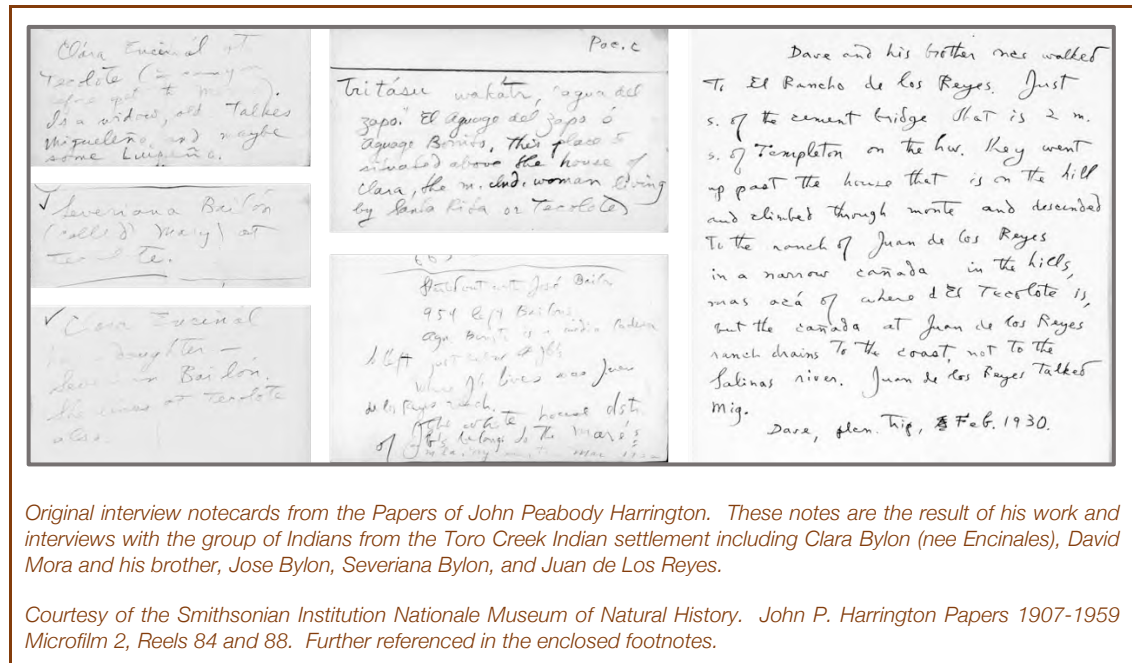 Clara Encinál at
Tecolote (= canyon
Is a widow, old. Talkes
Migueleño, and maybe
some Luiseño.
✓ Severiana Bailón
(called Mary) at
✓ Clara Encinál
daughter –
Bailón.
She lives at tecolote
also.
Poe. c
tritásu wakátr, "agua del
zapo." El Aguage del zapo ó
Aguage Bonito, this place is
situated above the house of
Clara, the m. Ind. woman living
by Santa Rita or Tecolote)
Start out with José Bailon
954 left Bailons
Agu Bonito is a
left just
where Jb lives was Juan
de los Reyes ranch.
The white house dstr.
of Jb's belongs to the
Dave and his brother nes walked
To El Rancho de los Reyes. Just
s. of the cement bridge that is 2 m.
s. of Templeton on the hw. they went
up past the house that is on the hill
and climbed through monte and descended
To the ranch of Juan de los Reyes
in a narrow cañada in the hills,
mas acá of where d El Tecolote is,
but the cañada at Juan de los Reyes
ranch drains To the coast, not To the
Salinas river. Juan de los Reyes Talked
Mig.
Dave, plen. Trip, Feb. 1930.
Original interview notecards from the Papers of John Peabody Harrington. These notes are the result of his work and
interviews with the group of Indians from the Toro Creek Indian settlement including Clara Bylon (nee Encinales), David
Mora and his brother, Jose Bylon, Severiana Bylon, and Juan de Los Reyes.
Courtesy of the Smithsonian Institution Nationale Museum of Natural History. John P. Harrington Papers 1907-1959
Microfilm 2, Reels 84 and 88. Further referenced in the enclosed footnotes.